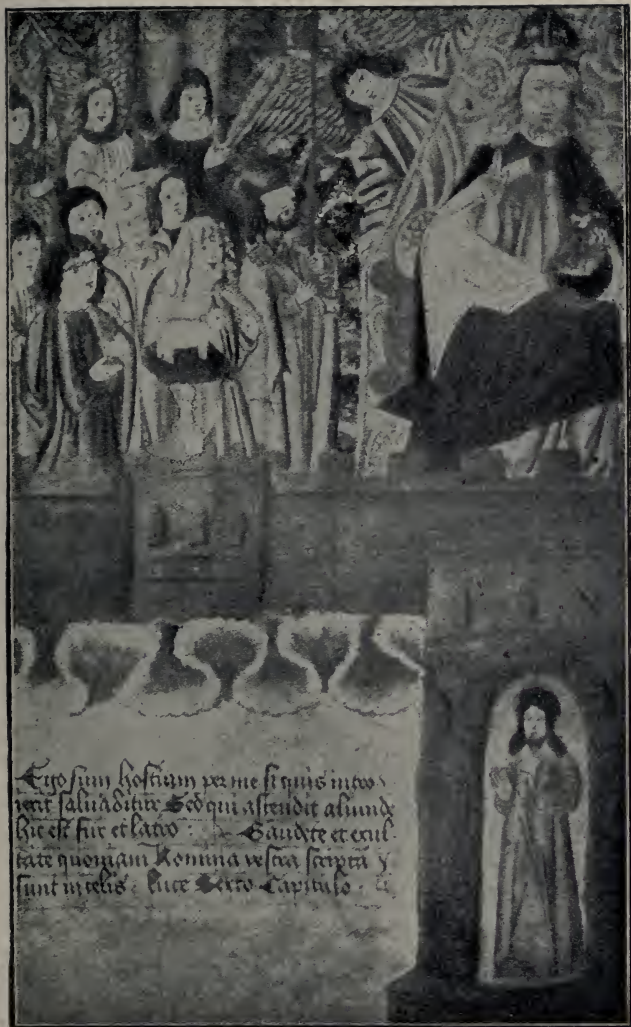 Ego sum hostium per me si quis intro
ierit saluabitur Sed qui ascendit aliunde
hic est fur et latro : Gaudete et exul
tate quoniam Nomina vestra scripta
sunt in celis : luce Sexto Capitulo :